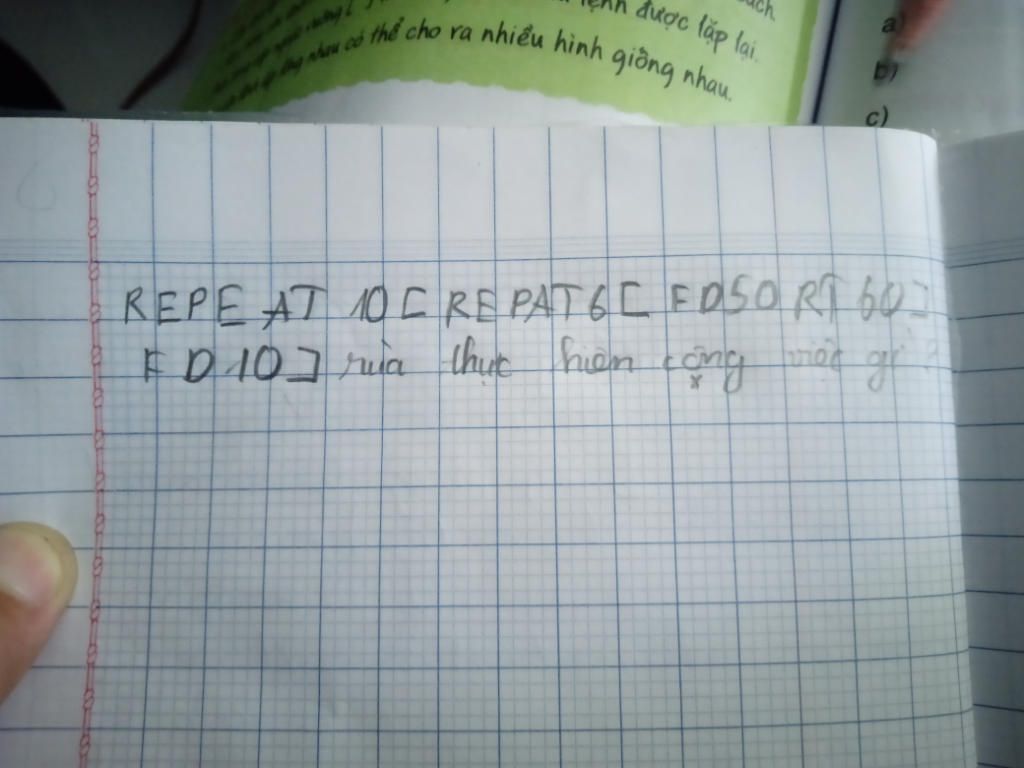 ách
lệnh được lặp lại.
nhau có thể cho ra nhiều hình giống nhau.
a)
b)
c)
REPEAT 10[ REPAT6[ FD50 RT 60]
FD10] rùa thực hiện công việc gì?